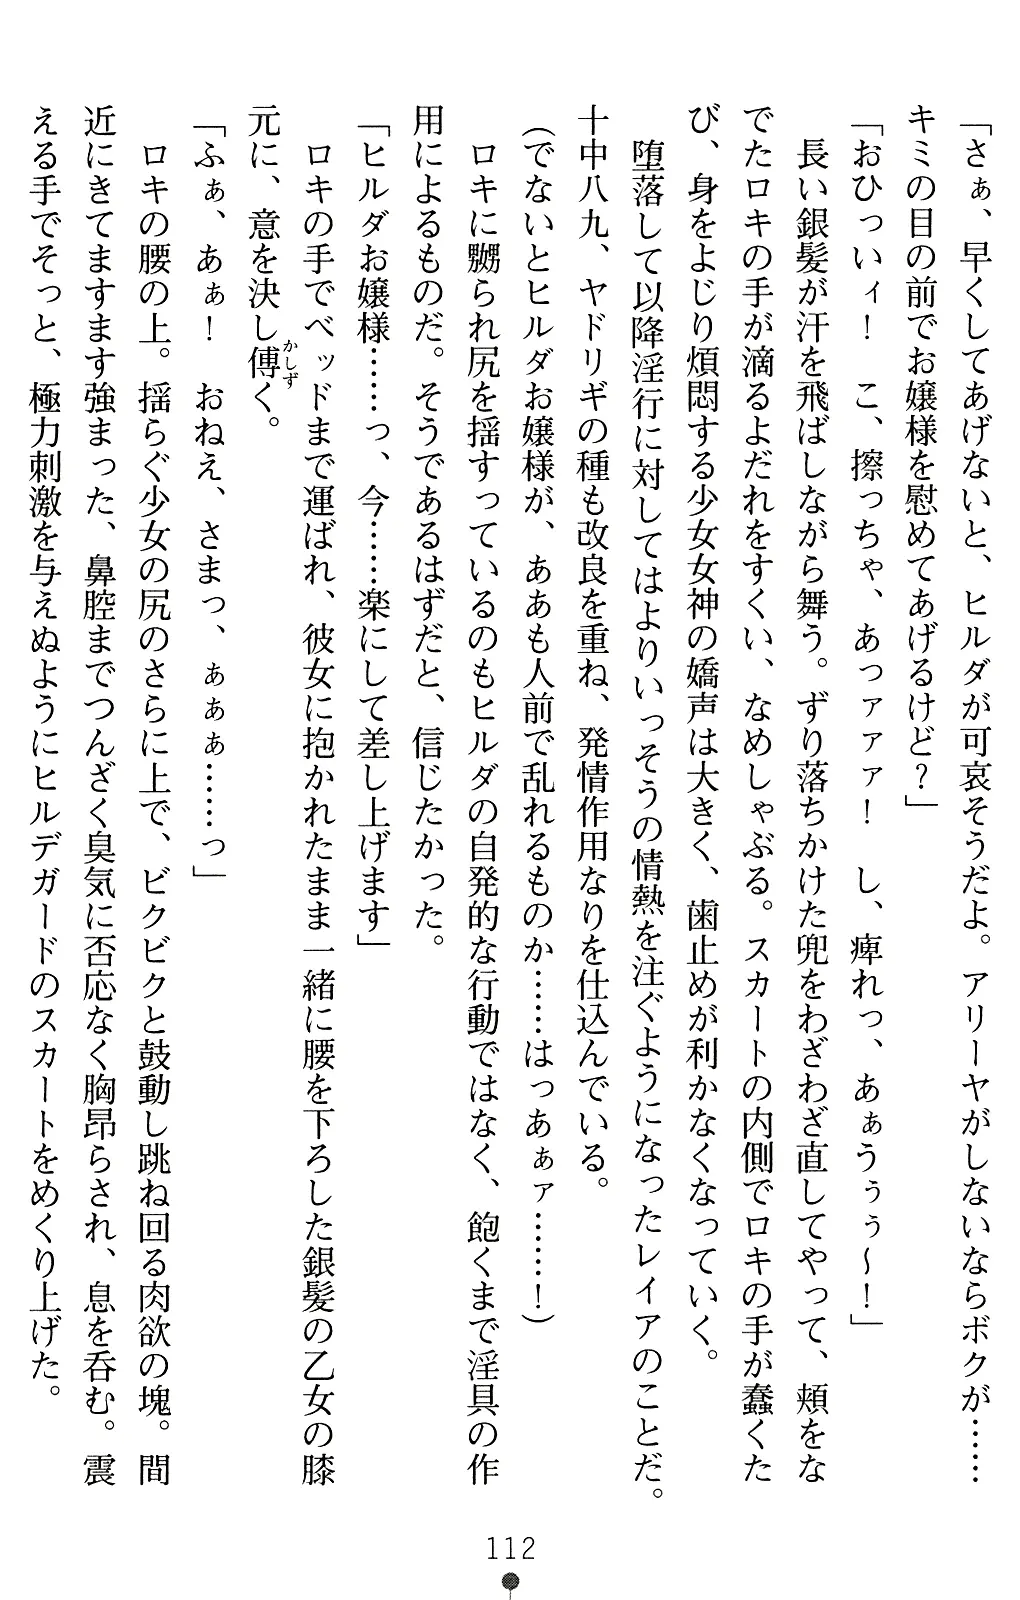 「さぁ、早くしてあげないと、ヒルダが可哀そうだよ。アリーヤがしないならボクが……
キミの目の前でお嬢様を慰めてあげるけど？」
「おひっいィ！　こ、擦っちゃ、あっァァァ！　し、痺れっ、あぁうぅぅ～！」
　長い銀髪が汗を飛ばしながら舞う。ずり落ちかけた兜をわざわざ直してやって、頬をな
でたロキの手が滴るよだれをすくい、なめしゃぶる。スカートの内側でロキの手が蠢くた
び、身をよじり煩悶する少女女神の嬌声は大きく、歯止めが利かなくなっていく。
　堕落して以降淫行に対してはよりいっそうの情熱を注ぐようになったレイアのことだ。
十中八九、ヤドリギの種も改良を重ね、発情作用なりを仕込んでいる。
（でないとヒルダお嬢様が、ああも人前で乱れるものか……はっあぁァ……！）
　ロキに嬲られ尻を揺すっているのもヒルダの自発的な行動ではなく、飽くまで淫具の作
用によるものだ。そうであるはずだと、信じたかった。
「ヒルダお嬢様……っ、今……楽にして差し上げます」
　ロキの手でベッドまで運ばれ、彼女に抱かれたまま一緒に腰を下ろした銀髪の乙女の膝
元に、意を決し傅かしずく。
「ふぁ、あぁ！　おねえ、さまっ、ぁぁぁ……っ」
　ロキの腰の上。揺らぐ少女の尻のさらに上で、ビクビクと鼓動し跳ね回る肉欲の塊。間
近にきてますます強まった、鼻腔までつんざく臭気に否応なく胸昂らされ、息を呑む。震
える手でそっと、極力刺激を与えぬようにヒルデガードのスカートをめくり上げた。
112